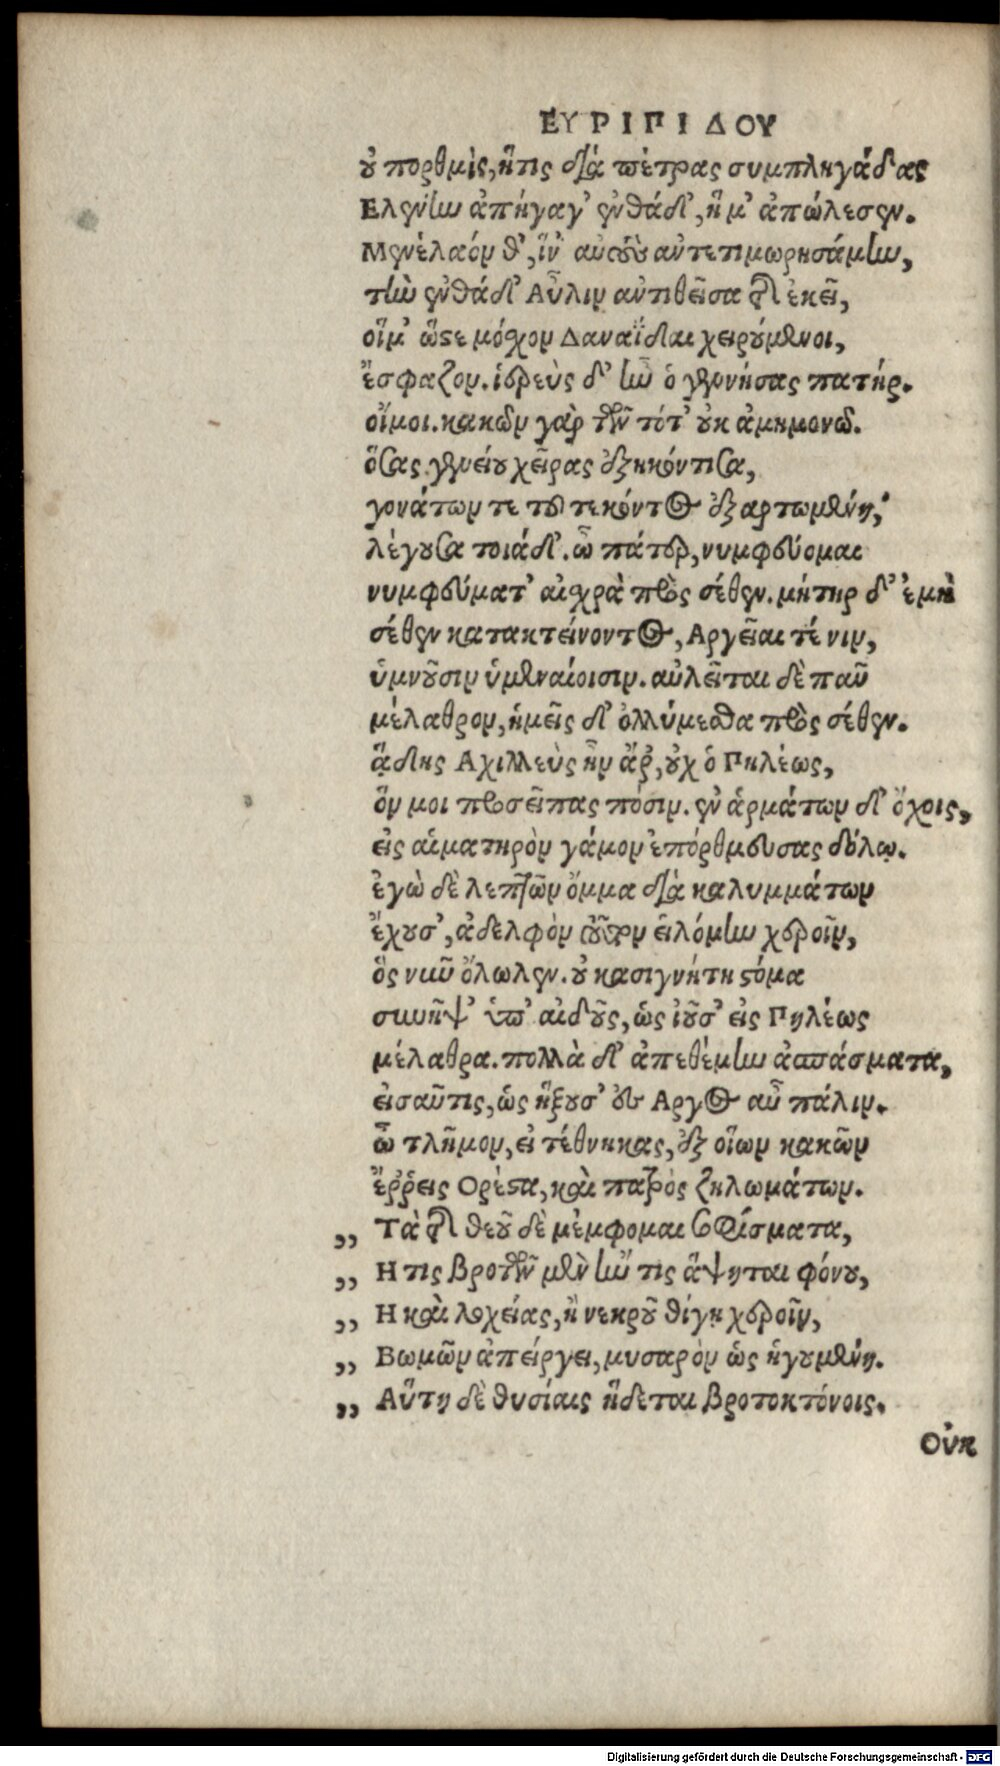 ΕΥΡΙΠΙΔΟΥ
οὐ πορθμὶς, ἥτις διὰ πέτρας συμπληγάδας
Ελένην ἀπήγαγ' ἐνθάδ', ἥ μ' ἀπώλεσεν.
Μενέλαόν θ', ἵν' αὐτοὺς ἀντετιμωρησάμην,
τὴν ἐνθάδ' Αὖλιν ἀντιθεῖσα τῆς ἐκεῖ,
οἷ μ' ὥστε μόσχον Δαναΐδαι χειρούμενοι,
ἔσφαζον. ἱερεὺς δ' ἦν ὁ γεννήσας πατήρ.
οἴμοι. κακῶν γὰρ τῶν τότ' οὐκ ἀμνημονῶ.
ὅσας γενείου χεῖρας ἐξηκόντισα,
γονάτων τε τοῦ τεκόντος ἐξαρτωμένη,
λέγουσα τοιάδ'. ὦ πάτερ, νυμφεύομαι
νυμφεύματ' αἰσχρὰ πρὸς σέθεν. μήτηρ δ' ἐμὴ
σέθεν κατακτείνοντος, Αργεῖαι τέ νιν,
ὑμνοῦσιν ὑμεναίοισιν. αὐλεῖται δὲ πᾶν
μέλαθρον, ἡμεῖς δ' ὀλλύμεσθα πρὸς σέθεν.
ᾅδης Αχιλλεὺς ἦν ἄρ', οὐχ ὁ Πηλέως,
ὅν μοι προσεῖπας πόσιν. ἐν ἁρμάτων δ' ὄχοις,
εἰς αἱματηρὸν γάμον ἐπόρθμευσας δόλῳ.
ἐγὼ δὲ λεπτῶν ὄμμα διὰ καλυμμάτων
ἔχουσ', ἀδελφὸν τοῦτον εἱλόμην χεροῖν,
ὃς νῦν ὄλωλεν. οὐ κασιγνήτῃ στόμα
συνῆψ' ὑπ' αἰδοῦς, ὡς ἰοῦσ' εἰς Πηλέως
μέλαθρα. πολλὰ δ' ἀπεθέμην ἀσπάσματα,
εἰσαῦτις, ὡς ἥξουσ' ἐς Αργος αὖ πάλιν.
ὦ τλῆμον, εἰ τέθνηκας, ἐξ οἵων κακῶν
ἔῤῥεις Ορέστα, καὶ πατρὸς ζηλωμάτων.
„ Τὰ τῆς θεοῦ δὲ μέμφομαι σοφίσματα,
„ Η τις βροτῶν μὲν ἤν τις ἅψηται φόνου,
„ Η καὶ λοχείας, ἢ νεκροῦ θίγῃ χεροῖν,
„ Βωμῶν ἀπείργει, μυσαρὸν ὡς ἡγουμένη.
„ Αὕτη δὲ θυσίαις ἥδεται βροτοκτόνοις.
Οὐκ
Digitalisierung gefördert durch die Deutsche Forschungsgemeinschaft - DFG